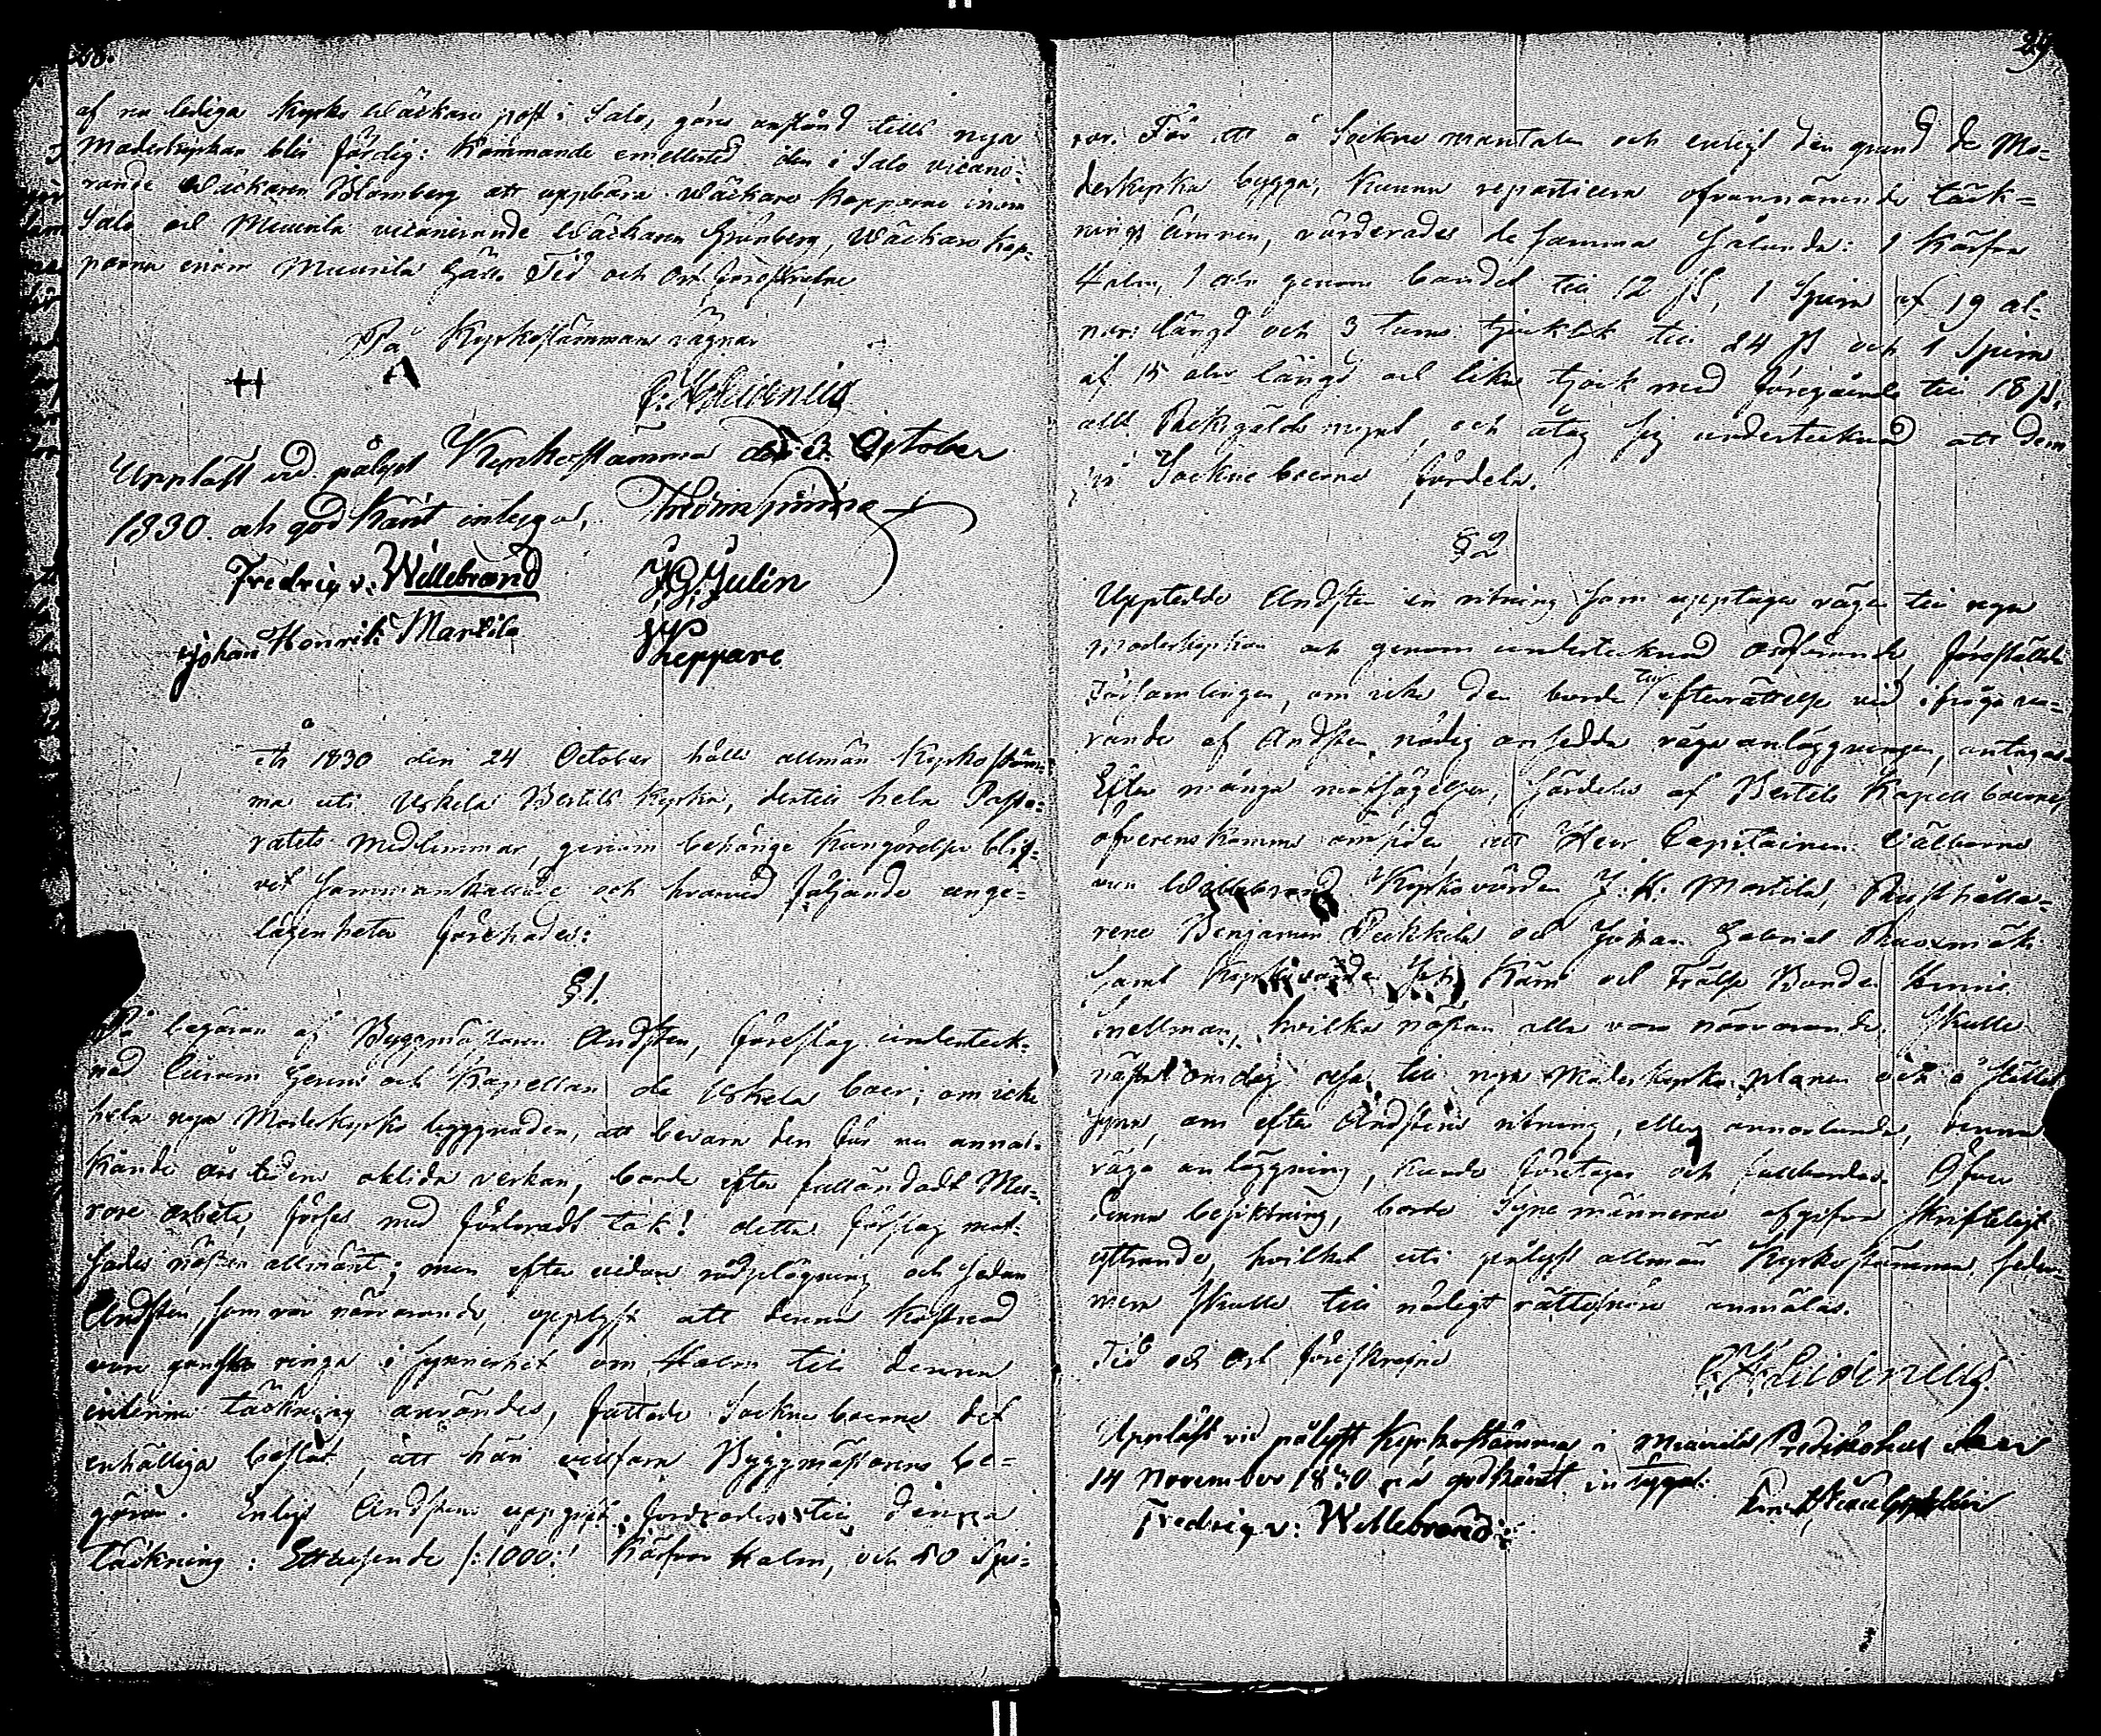 28.
af nu lediga Kyrko Wäckare post i Salo, görs anstånd tills nya
Moderkyrkan blir färdig: Kommande emellertid den i Salo vicarie-
rande Wäckaren Blomberg att uppbära Wäckare Kapporne inom
Salo och Muurila vicarierande Wäckaren Grönberg, Wäckare Kap-
porna inom Muurila Gäll. Tid och Ort föreskrefne
På Kyrkostämmans vägnar
Uppläst vid pålyst Kyrkostämma den 3. October
1830. och godkänt intygas,
Fredrig v: Willebrand J.G. Julin
Johan Henrik Martila
Heppare
År 1830 den 24 October hölls allmän Kyrkostäm-
ma uti Uskela Bertils Kyrka, dertill hela Pasto-
ratets Medlemmar, genom behörige Kungörelse blif-
vit Sammankallade och hvarvid följande ange-
lägenheter förehades:
§1.
På begäran af Byggmästaren Andsten, föreslog underteck-
nad Curam Gerens och Kapellan de Uskela boer; om icke
hela nya Moderkyrko byggnaden, att bevara den för nu annal-
kande års tidens oblida verkan, borde efter fulländadt Mu-
rare arbete, förses med förloradt tak! detta förslag mot-
sades nästan allmänt; men efter vidare rådplägning och sedan
Andsten, som var närvarande, upplyst att denna kostnad
vore ganska ringa i synnerhet om Halm till denna
interims täckning användes, fattade Sockne boerne det
enhälliga beslut, att häri villfara Byggmästarens be-
gäran. Enligt Andstens uppgift fordrades till denna
täckning: Ettusende /:1000:/ Kärfvar Halm, och 50 Spi-
29
ror. För att å Sockne mantalen och enligt den grund de Mo-
derkyrka bygga, kunna repartiera ofvannämnde täck-
nings ämnen, värderades de samma Sålunda: 1 Kärfva
Halm, 1 aln genom bandet till 12 , 1 Spira af 19 al-
nars längd och 3 tums tjocklek till 24 och 1 Spira
af 15 alns längd och lika tjock med föregående till 18
allt Riksgälds mynt, och åtog sig undertecknad att dem
på Sockne boerne fördela.
§2
Upptedde Andsten en ritning som upptager vägen till nya
Moderkyrkan och genom undertecknad Ordförande, föreställde
Församlingen, om icke den borde till efterrättelse vid ifråga va-
rande af Andsten nödig ansedda väga anläggningen, antagas.
Efter många motsägelser, särdeles af Bertils Kapell boerne,
öfverenskomms omsider, att Herr Capitainen Välborne
von Willebrand Kyrkovärden J. H. Martila, Rusthålla-
rene Benjamin Pukkila och Johan Gabriel
samt Kyrkovärden Joh. Kärn och Frälse Bonden
Snellman, hvilka nästan alla voro närvarande. Skulle
nästa onsdag resa till nya Moderkyrko planen och å stället
syna, om efter Andstens ritning, eller annorlunda, denna
väga anläggning, kunde företagas och fullbordas. Öfver
denna besiktning, borde Syne männerne afgifva skrifteligt
yttrande, hvilket uti pålyst allmän Kyrkostämma, seder-
mera skulle till nödigt rättesnöre anmälas.
Tid och Ort föreskrefne
Uppläst vid pålyst Kyrkostämma i Muurila Predikohus den
14 November 1830 och godkändt intygas:
Fredrig v: Willebrand: